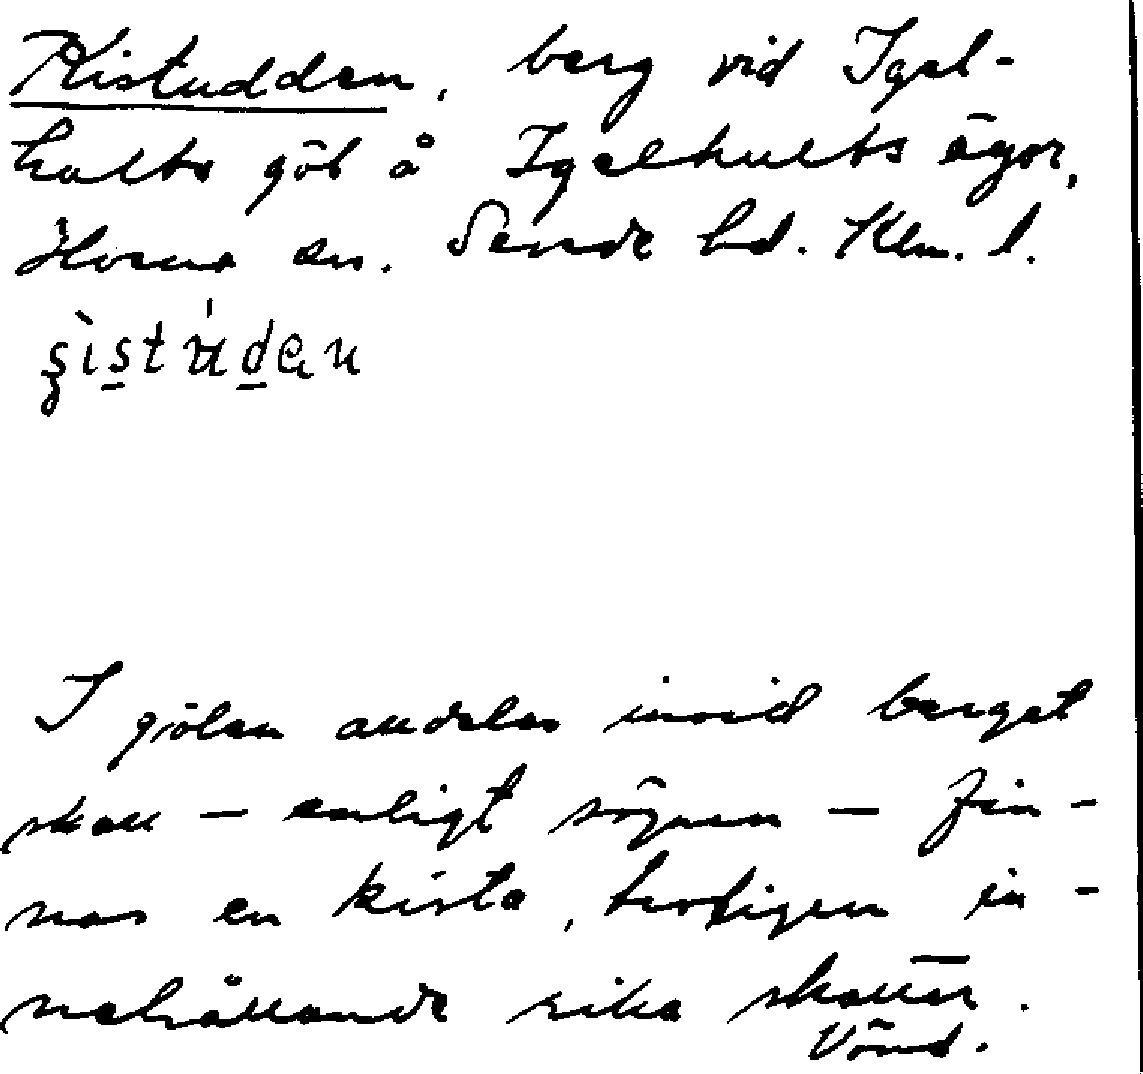 Kistudden, berg vid Igel-
hults göl å Igelhults ägor,
Horna sn. Sevede hd. Klm. l.
I gölen alldeles invid berget
skall – enligt sägnen – fin-
nas en kista, troligen in-
nehållande rika skatter.
Vönd.